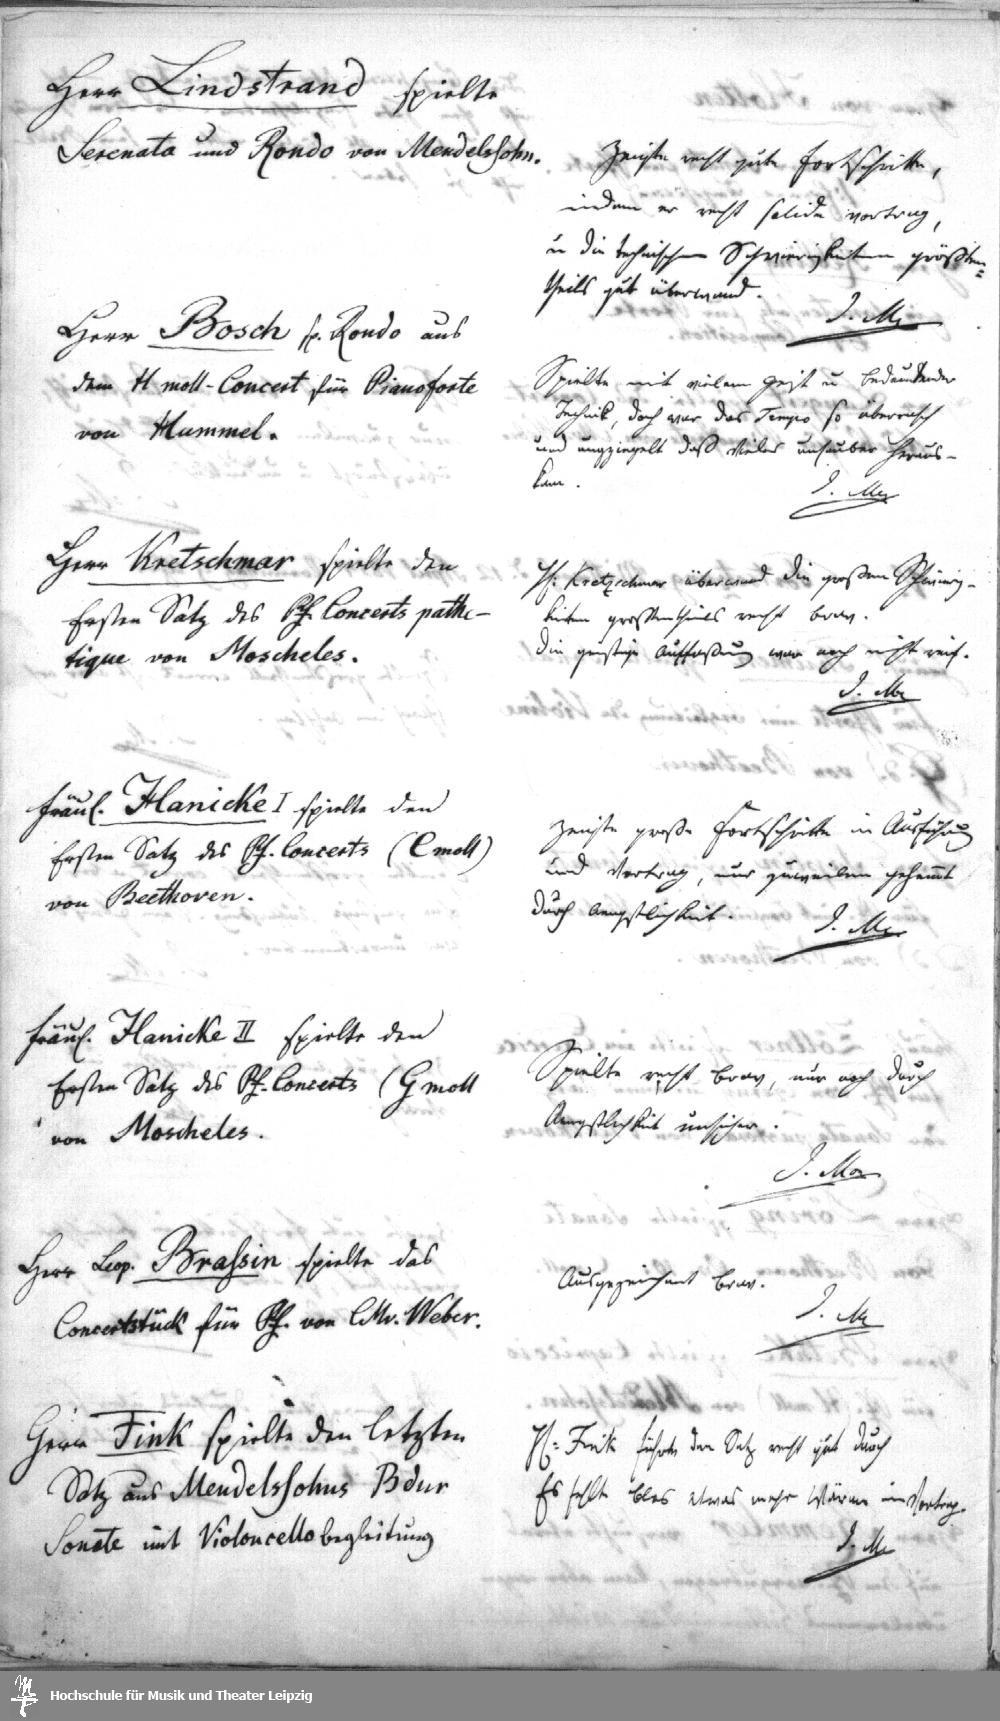 Herr Lindstrand spielte
Serenata und Rondo von Mendelssohn.
Zeigte recht gute Fortschritte,
indem er recht solide vortrug,
u die technischen Schwierigkeiten größten=
theils gut überwand.
I. M
Herr Bosch sp. Rondo aus
dem H moll-Concert für Pianoforte
von Hummel.
Spielte mit vielem Geist u bedeutender
Technik, doch war das Tempo so überrasch
und daß Vieles unsauber heraus-
kam.
I. M
Herr Kretschmar spielte den
Ersten Satz des Pf. Concerts pathe-
tique von Moscheles.
H: Kretzschmar überwand die großen Schwierig-
keiten großentheils recht brav.
Die geistige Auffassung war noch nicht reif.
I. Mos
Fräul. Hanicke I spielte den
Ersten Satz des Pf. Concerts (C moll)
von Beethoven.
Zeigte große Fortschritte in Ausführung
und Vortrag, nur zuweilen gehemmt
durch Aengstlichkeit.
I. Mos
Fräul. Hanicke II spielte den
Ersten Satz des Pf. Concerts (G moll
von Moscheles.
Spielte recht brav, nur noch durch
Aengstlichkeit unsicher.
I. Mos
Herr Leop. Brassin spielte das
Concertstück für Pf. von CM v. Weber.
Ausgezeichnet brav.
I. M
Herr Fink spielte den letzten
Satz aus Mendelssohns B dur
Sonate mit Violoncellobegleitung
H: Fink führte den Satz recht gut durch
Es fehlte blos etwas mehr Wärme im Vortrag.
I. M
Hochschule für Musik und Theater Leipzig